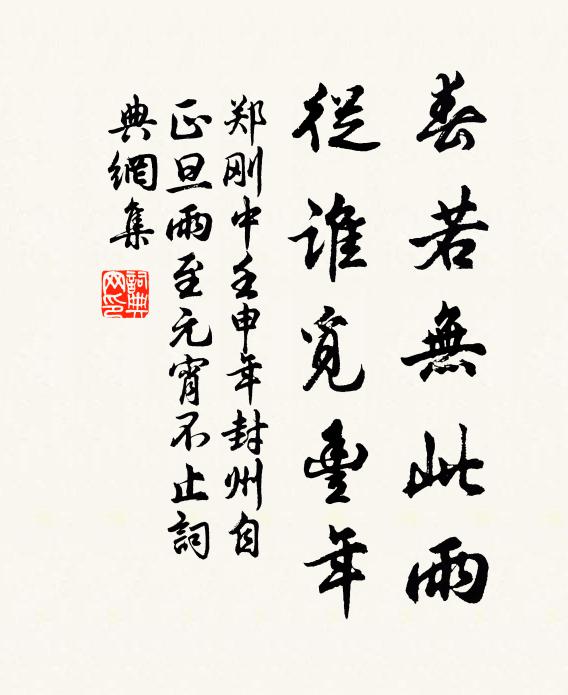 春若無此雨
從誰覓豐年
郑刚中壬申年封州自
正旦雨至元宵不止詞
典網集
詞典
网印